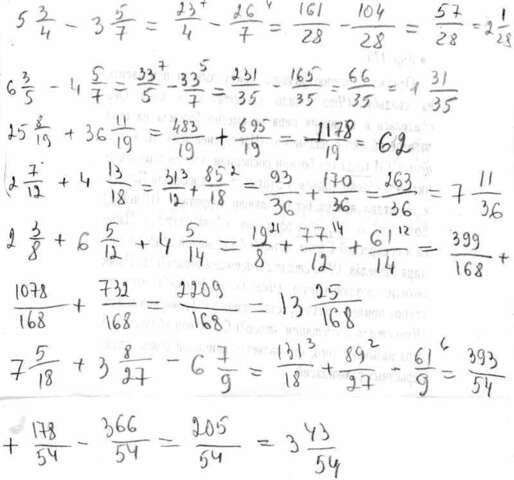 5 3/4 - 3 5/7 = 23⁷/4 - 26⁴/7 = 161/28 - 104/28 = 57/28 = 2 1/28
6 3/5 - 4 5/7 = 33⁷/5 - 33⁵/7 = 231/35 - 165/35 = 66/35 = 1 31/35
25 8/19 + 36 11/19 = 483/19 + 695/19 = 1178/19 = 62
2 7/12 + 4 13/18 = 31³/12 + 85²/18 = 93/36 + 170/36 = 263/36 = 7 11/36
2 3/8 + 6 5/12 + 4 5/14 = 19²¹/8 + 77¹⁴/12 + 61¹²/14 = 399/168 +
1078/168 + 732/168 = 2209/168 = 13 25/168
7 5/18 + 3 8/27 - 6 7/9 = 131³/18 + 89²/27 - 61⁶/9 = 393/54
+ 178/54 - 366/54 = 205/54 = 3 43/54